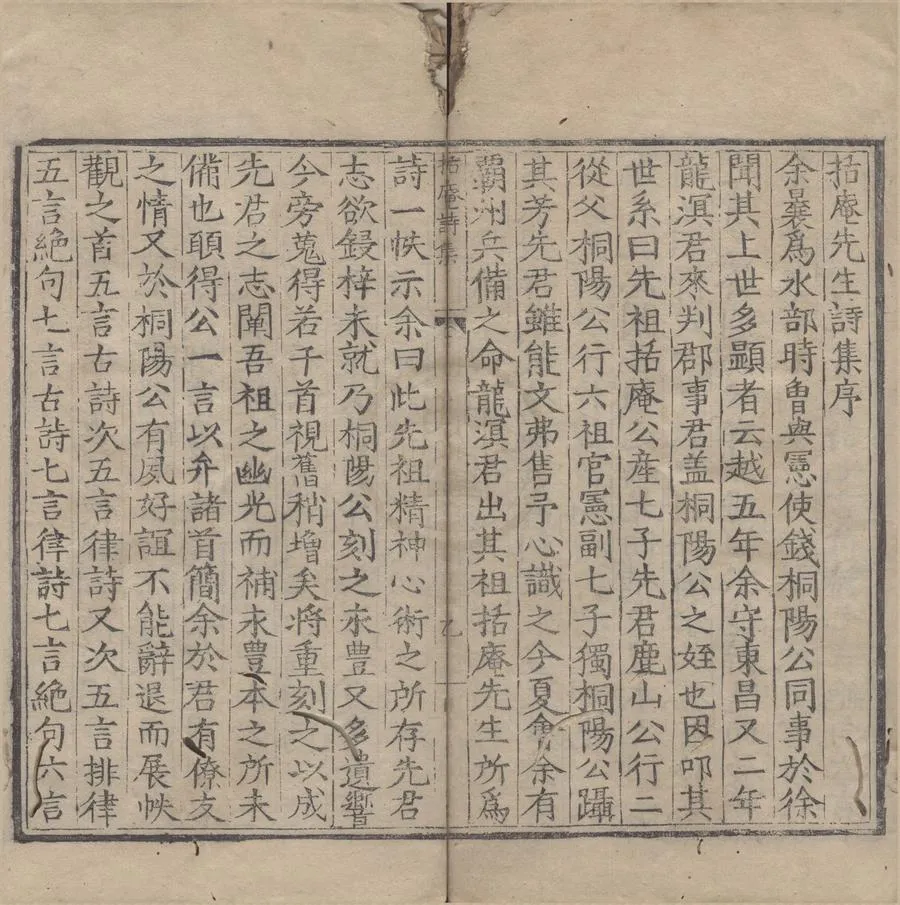 括庵先生詩集序
余曩爲水部時曾與憲使錢桐陽公同事於徐
聞其上世多顯者云越五年余守東昌又二年
龍溟君來判郡事君盖桐陽公之姪也因叩其
世系曰先祖括庵公産七子先君麈山公行二
從父桐陽公行六祖官憲副七子獨桐陽公躡
其芳先君雖能文弗售予心識之今夏會余有
覇州兵備之命龍溟君出其祖括庵先生所爲
括庵詩集
乙
詩一帙示余曰此先祖精神心術之所存先君
志欲鋟梓未就乃桐陽公刻之永豊又多遺響
今旁蒐得若干首視舊稍增矣將重刻之以成
先君之志闡吾祖之幽光而補永豊本之所未
備也頥得公一言以弁諸首簡余於君有僚友
之情又於桐陽公有夙好誼不能辭退而展帙
觀之首五言古詩次五言律詩又次五言排律
五言絶句七言古詩七言律詩七言絶句六言